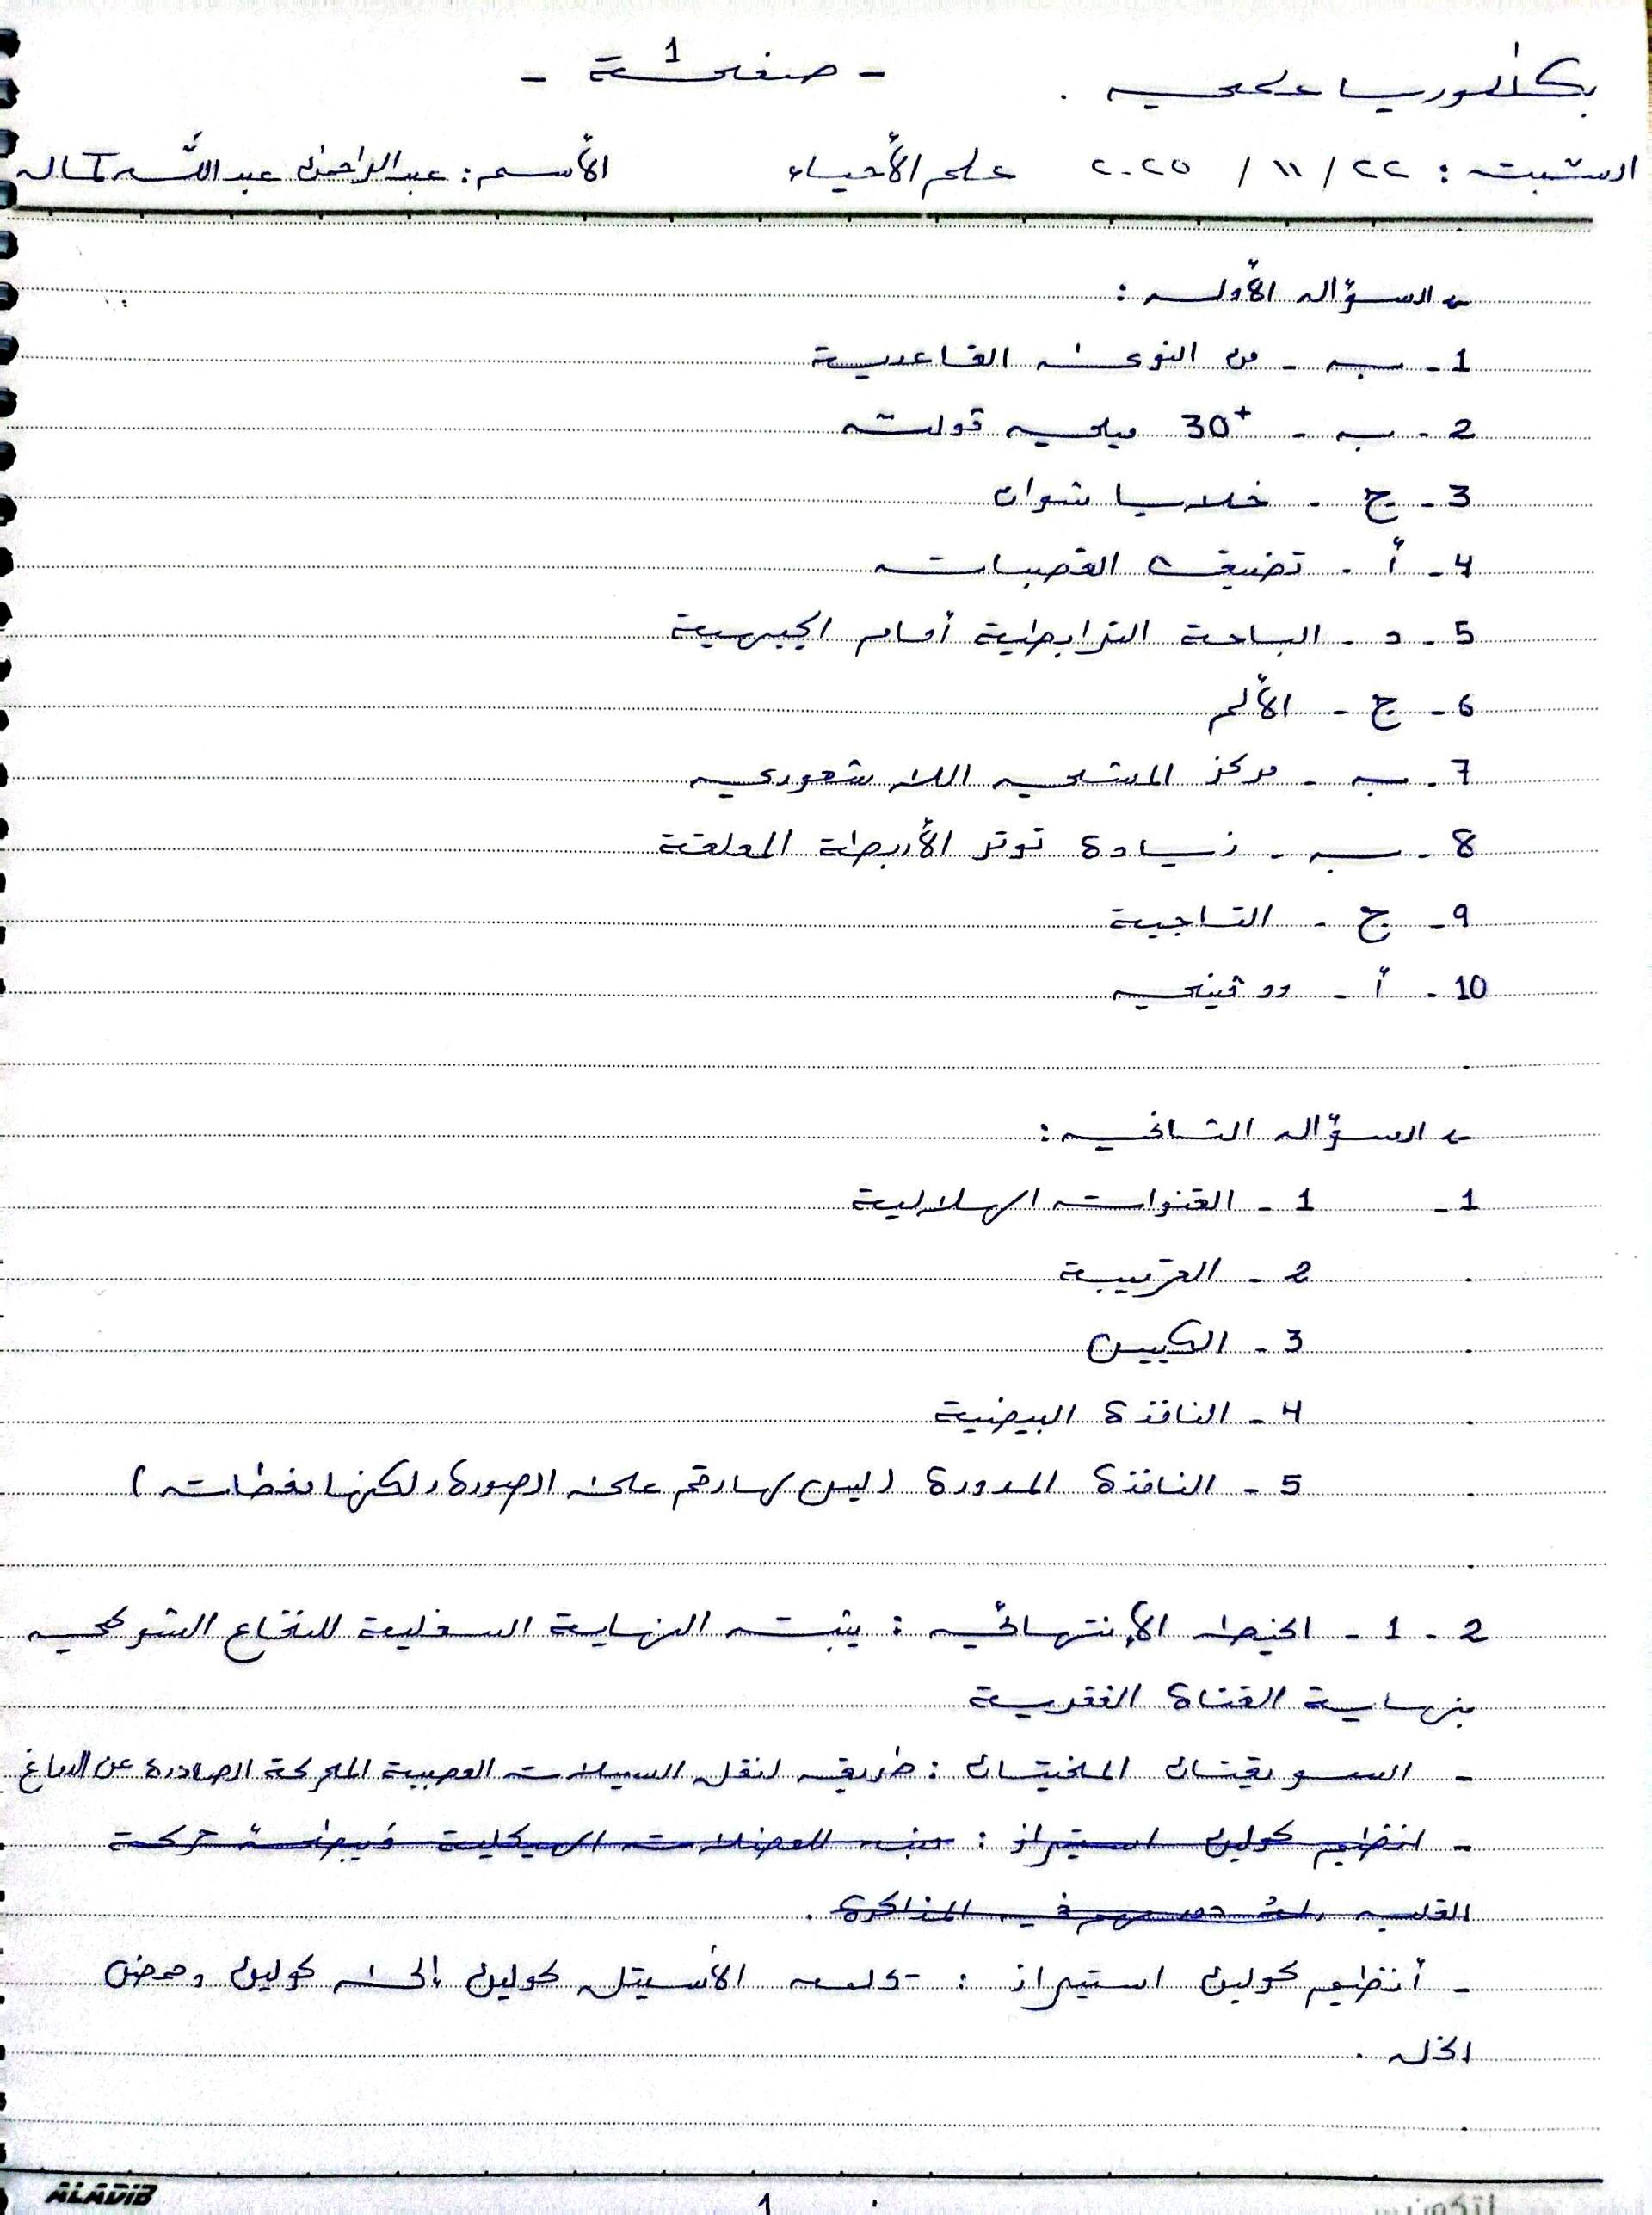 - صفحة 1 -
بكالوريا علمي .
السبت : ٢٢ / ١١ / ٢٠٢٥ علم الأحياء الأسم : عبد الرحمن عبد الله
السؤال الأول :
1 - ب - من النوى القاعدية
2 - ب - 30⁺ ميلي ڤولت
3 - ج - خلايا شوان
4 - أ - تضيق القصبات
5 - د - الباحة الترابطية أمام الجبهية
6 - ج - الألم
7 - ب - مركز المشي اللا شعوري
8 - ب - زيادة توتر الأربطة المعلقة
9 - ج - التاجية
10 - أ - دوفيني
السؤال الثاني :
1 - 1 - القنوات الهلالية
2 - القريبة
3 - الكييس
4 - النافذة البيضية
5 - النافذة المدورة (ليس لها رقم على الصورة ولكنها مغطات)
2 - 1 - الخيط الأنتهائي : يثبت النهاية السفلية للنخاع الشوكي
بنهاية القناة الفقرية
- السويقتان المخيتان : طريق لنقل السيالات العصبية المحركة الصادرة عن الدماغ
- انظيم كولين استيراز : منبه للعضلات الهيكلية فيبطئ حركة
القلب له دور مهم في الذاكرة .
- أنظيم كولين استيراز : الأسيتل كولين إلى كولين وحمض
الخل .
ALADIB
1